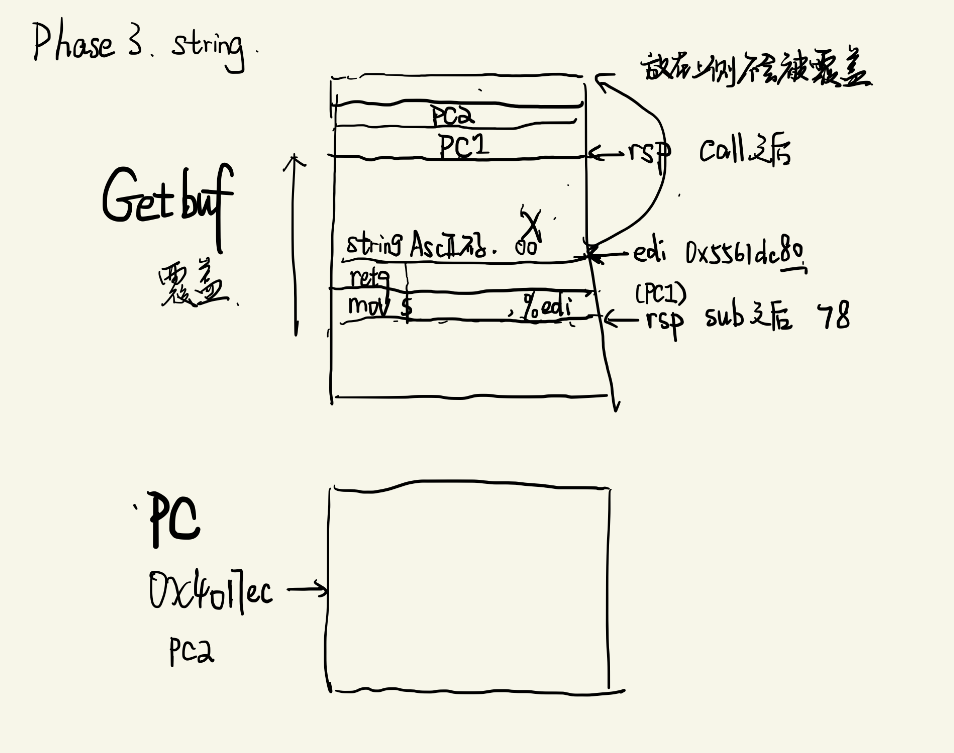 Phase 3. string.
放在上侧不会被覆盖
PC2
PC1
rsp call之后
Getbuf
覆盖.
string AscII码. 00 X
edi 0x5561dc80
retq
mov $ , %edi
(PC1)
rsp sub之后 78
PC
0x4017ec
PC2